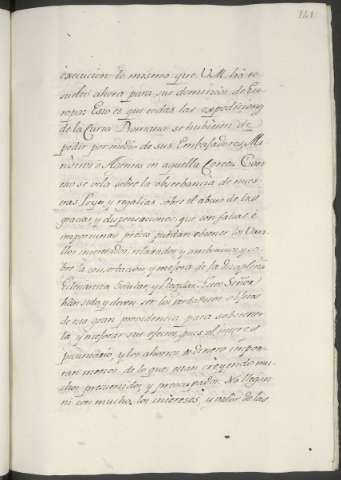 141
execucion lo mismo que V. M. ha re
suelto ahora para sus dominios de Eu
ropa: Esto es que todas las expediciones
de la Curia Romana se hubiesen de
pedir por medio de sus Embaxadores, Mi
nistros o Agentes en aquella Corte. Con
esto se vela sobre la observancia de nues
tras Leyes y regalias, sobre el abuso de las
gracias y dispensaciones, que con falsas é
importunas preces puedan obtener los Vasa
llos incautos, relaxados y ambiciosos, y so
bre la conservacion y mejora de la disciplina
Eclesiastica Secular y Regular. Estos Señor
han sido, y deven ser los verdaderos objetos
de esta gran providencia para sobstener
la y mejorar sus efectos, pues el interes
pecuniario, y los ahorros de dinero impor
tan menos de lo que estan creyendo mu
chos presumidos y preocupados. No llegan
ni con mucho los intereses, y valor de las